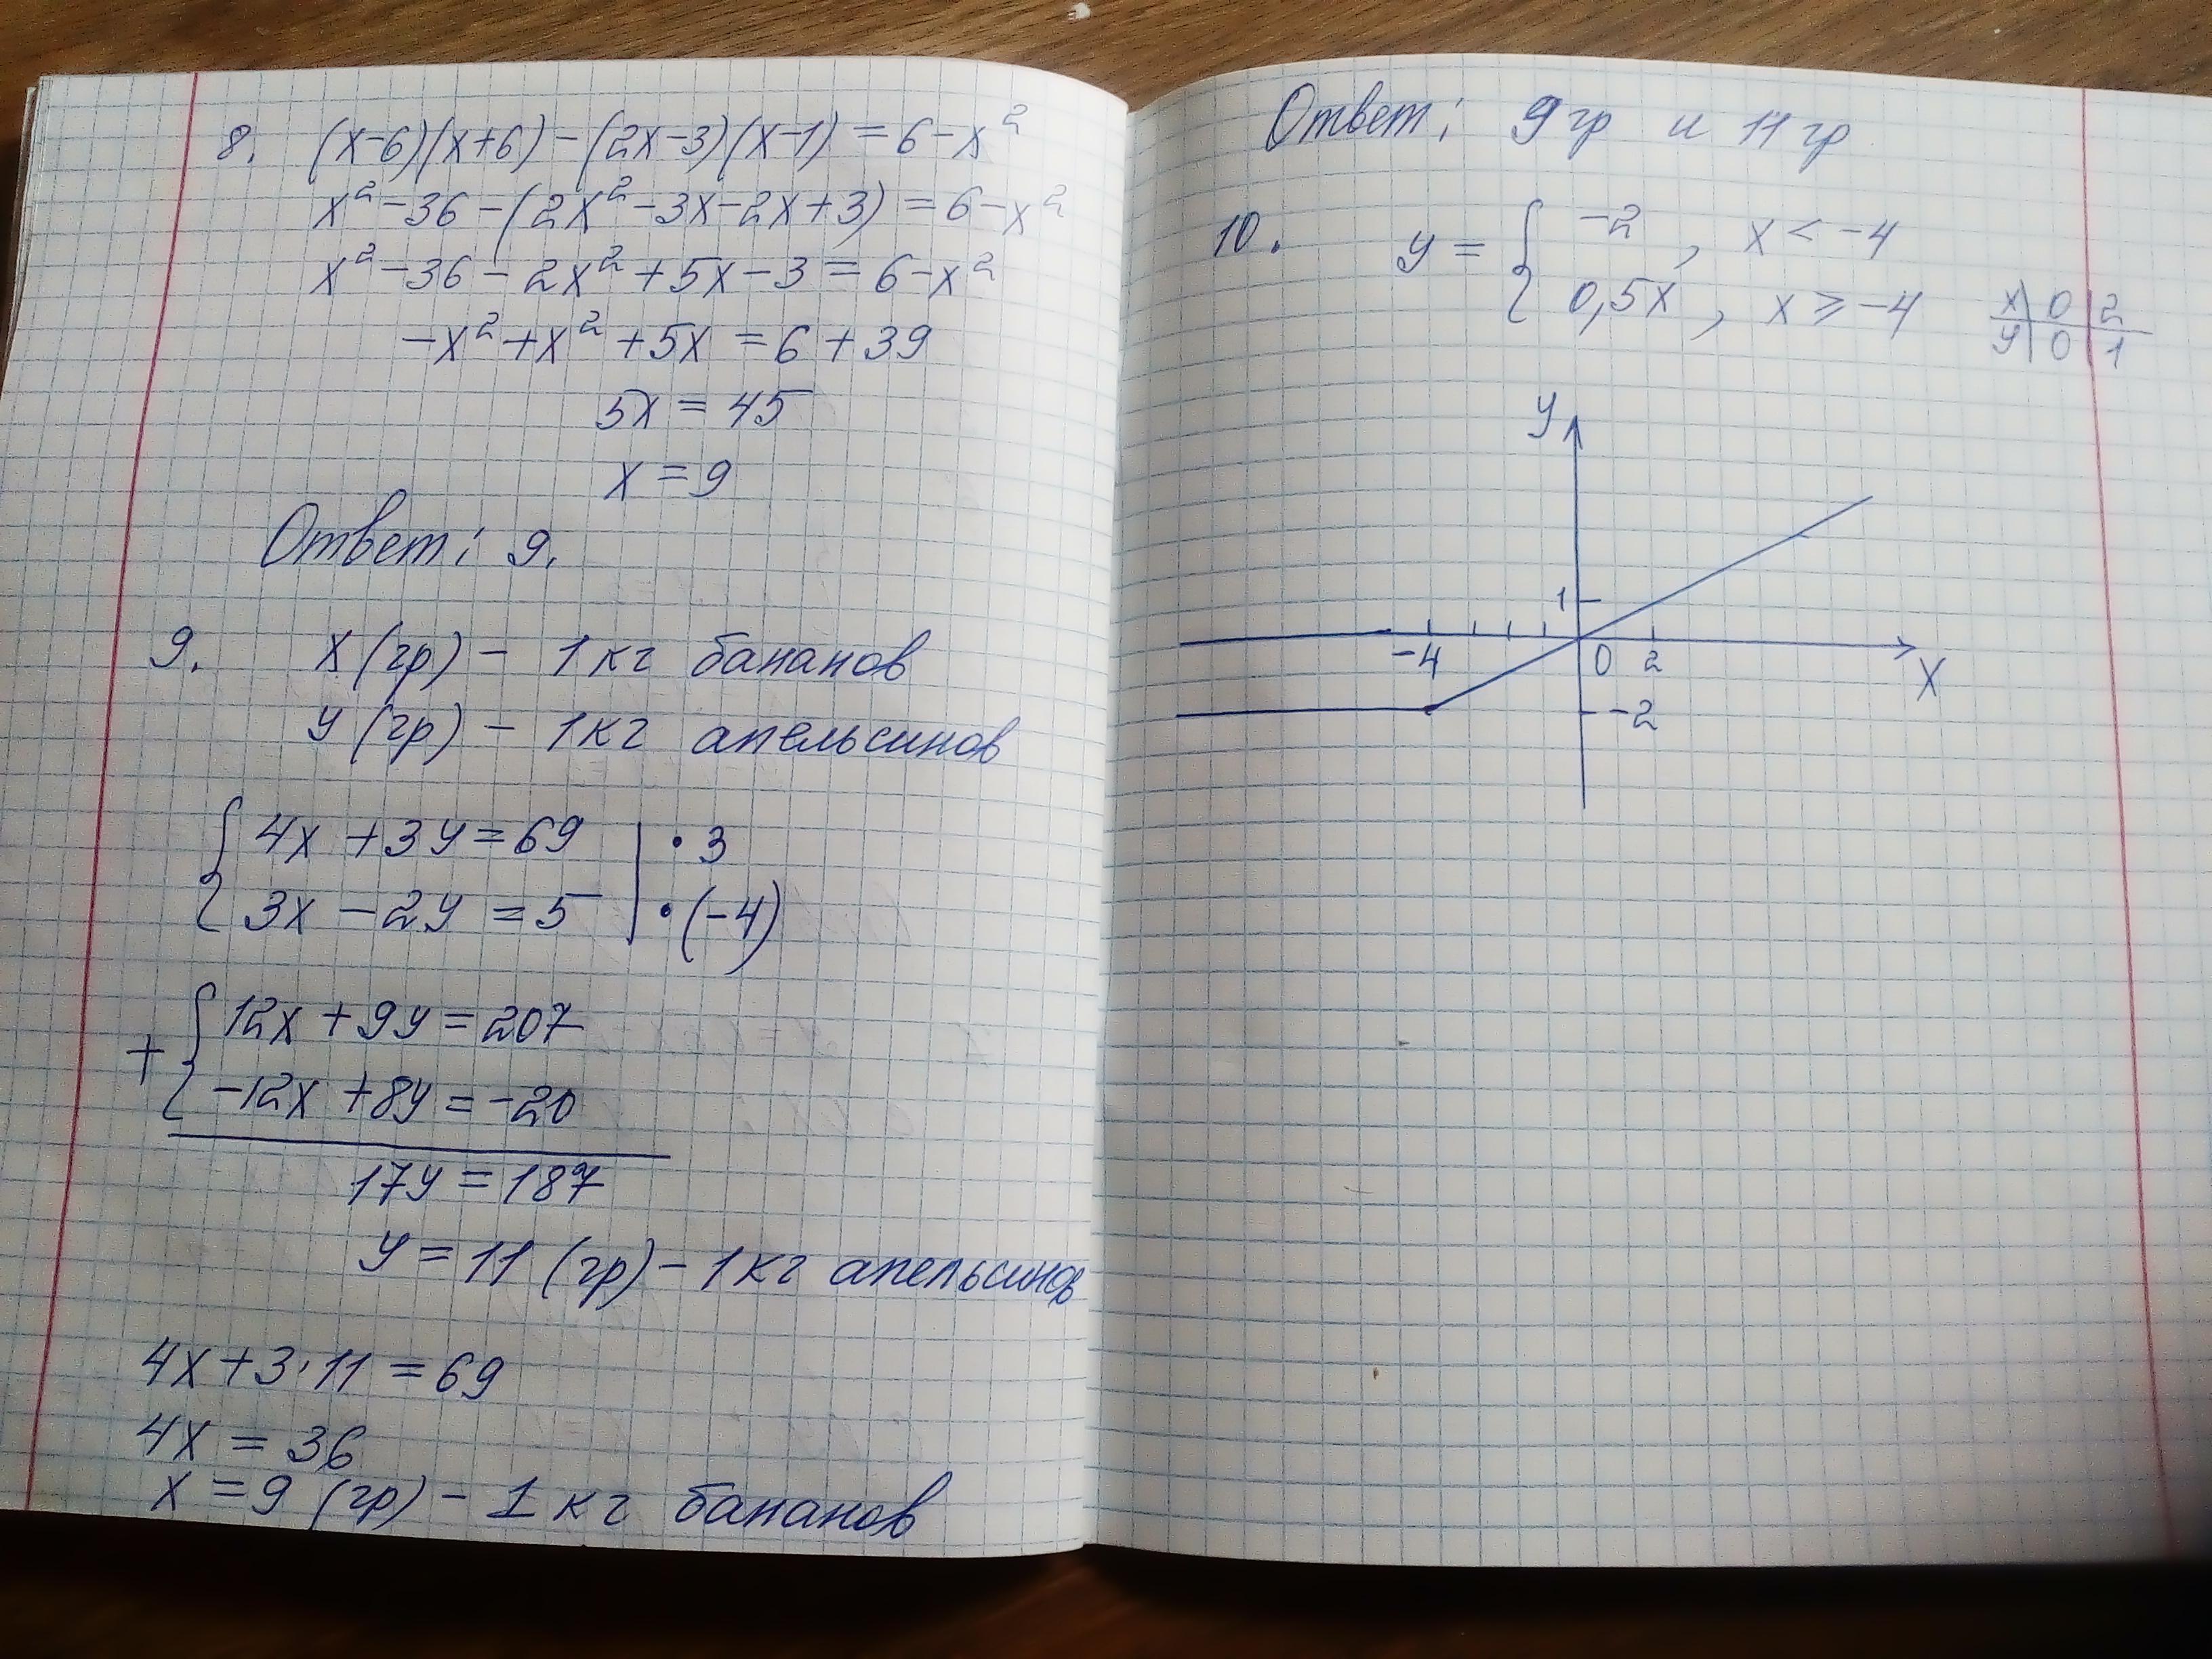 8. (x-6)(x+6)-(2x-3)(x-1)=6-x²
x²-36-(2x²-3x-2x+3)=6-x²
x²-36-2x²+5x-3=6-x²
-x²+x²+5x=6+39
5x=45
x=9
Ответ: 9.
9. x(гр) - 1кг бананов
y(гр) - 1кг апельсинов
{ 4x+3y=69 | •3
3x-2y=5 | •(-4)
+ { 12x+9y=207
-12x+8y=-20
17y=187
y=11 (гр) - 1кг апельсинов
4x+3·11=69
4x=36
x=9 (гр) - 1кг бананов
Ответ: 9гр и 11гр
10. y= { -2, x<-4
0,5x, x≥-4
x | 0 | 2
y | 0 | 1
y
1
-4 0 2
x
-2